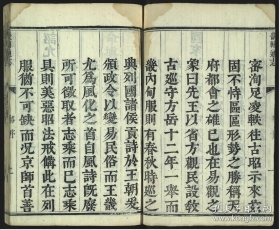 審洵足淩軼往古昭示來茲
固不恃區區形勢之勝稱天
府都會之雄已也在易觀之
象曰先王以省方觀民設敎
古巡守方岳十二年一舉而
畿內甸服則有春秋時巡之
典列國諸侯貢詩於王朝爰
頒政令以變易民俗而王畿
尤為風化之首自風詩旣廢
所可徵取者志乘而已志乘
脩美惡昭法戒備此在列
服猶不可缺而况京師首善